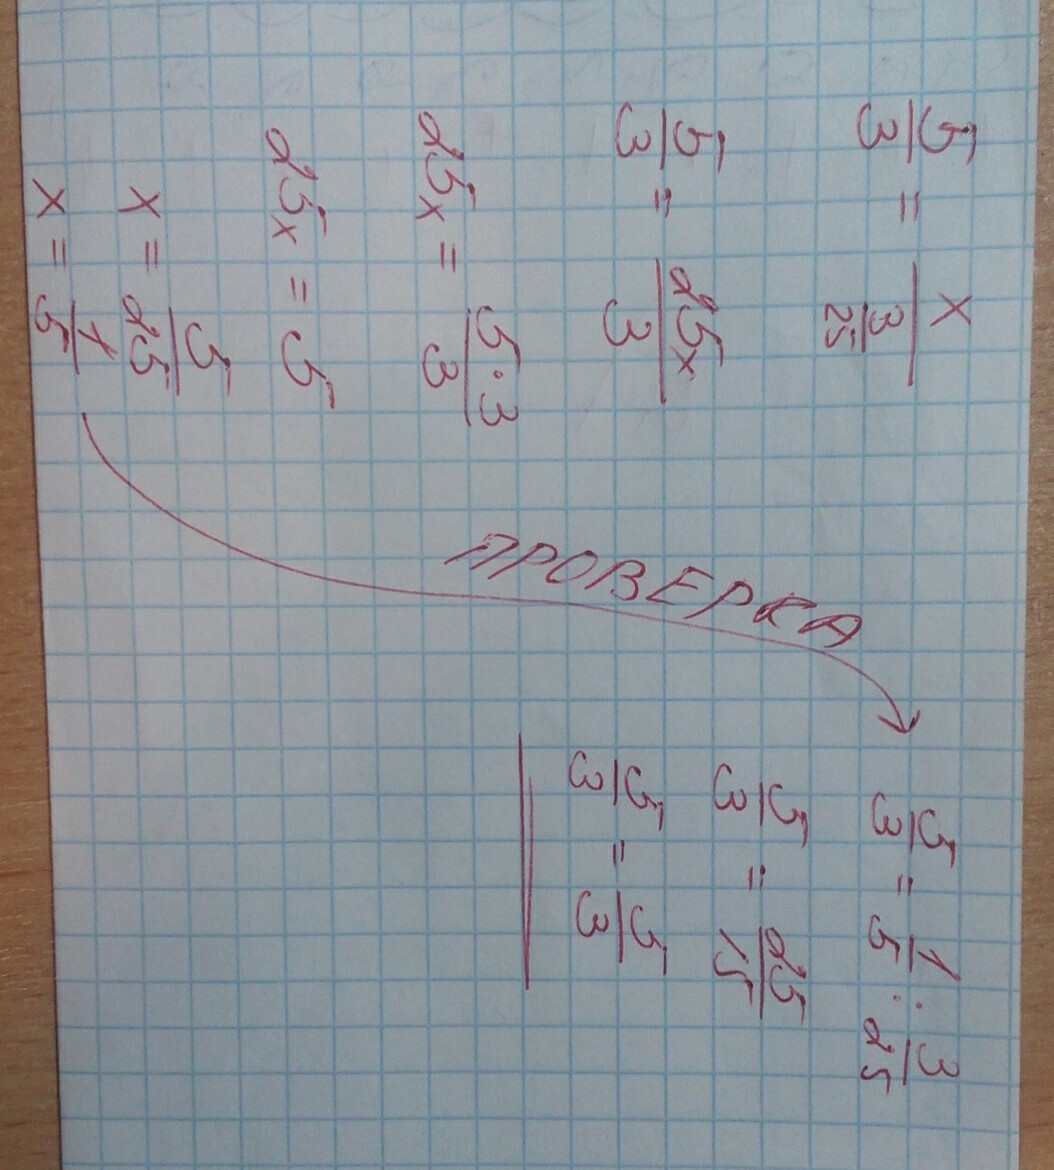 5/3 = x/(3/25)
5/3 = 25x/3
25x = 5·3/3
25x = 5
x = 5/25
x = 1/5
ПРОВЕРКА
5/3 = 1/5 : 3/25
5/3 = 25/15
5/3 = 5/3